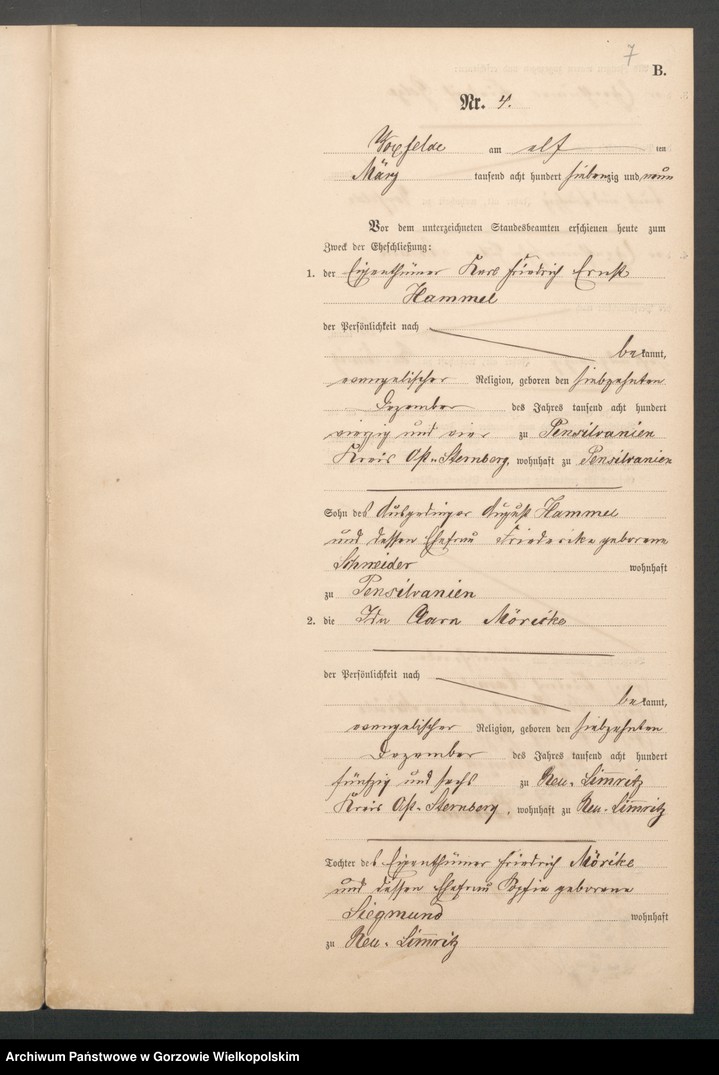 7
B.
Nr. 4.
Woxfelde am elf ten
März tausend acht hundert siebenzig und neun
Vor dem unterzeichneten Standesbeamten erschienen heute zum
Zweck der Eheschließung:
1. der Eigenthümer Karl Friedrich Ernst
Hammel
der Persönlichkeit nach
bekannt,
evangelischer Religion, geboren den siebzehnten
Dezember des Jahres tausend acht hundert
vierzig und vier zu Pensilvanien
Kreis Ost-Sternberg, wohnhaft zu Pensilvanien
Sohn des Ausgedinger August Hammel
und dessen Ehefrau Friederike geborene
Schneider wohnhaft
zu Pensilvanien
2. die Ida Clara Möricke
der Persönlichkeit nach
bekannt,
evangelischer Religion, geboren den siebzehnten
Dezember des Jahres tausend acht hundert
fünfzig und sechs zu Neu-Limritz
Kreis Ost-Sternberg, wohnhaft zu Neu-Limritz
Tochter des Eigenthümer Friedrich Möricke
und dessen Ehefrau Sophie geborene
Siegmund wohnhaft
zu Neu-Limritz
Archiwum Państwowe w Gorzowie Wielkopolskim